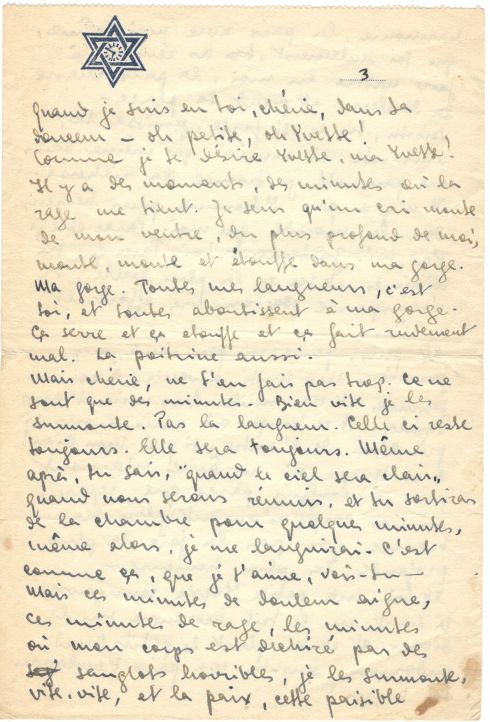 3
Quand je suis en toi, chérie, dans ta
douceur — oh petite, oh Yvette!
Comme je te désire Yvette, ma Yvette!
Il y a des moments, des minutes où la
rage me tient. Je sens qu'un cri monte
de mon ventre, du plus profond de moi,
monte, monte et étouffe dans ma gorge.
Ma gorge. Toutes mes langueurs, c'est
toi, et toutes aboutissent à ma gorge.
Ça serre et ça étouffe et ça fait rudement
mal. La poitrine aussi.
Mais chérie, ne t'en fais pas trop. Ce ne
sont que des minutes. Bien vite je les
surmonte. Pas la langueur. Celle ci reste
toujours. Elle sera toujours. Même
après, tu sais, "quand le ciel sera clair"
quand nous serons réunis, et tu sortiras
de la chambre pour quelques minutes,
même alors, je me languirai. C'est
comme ça, que je t'aime, vois-tu —
Mais ces minutes de douleur aigue,
ces minutes de rage, les minutes
où mon corps est déchiré par des
sanglots horribles, je les surmonte,
vite, vite, et la paix, cette paisible